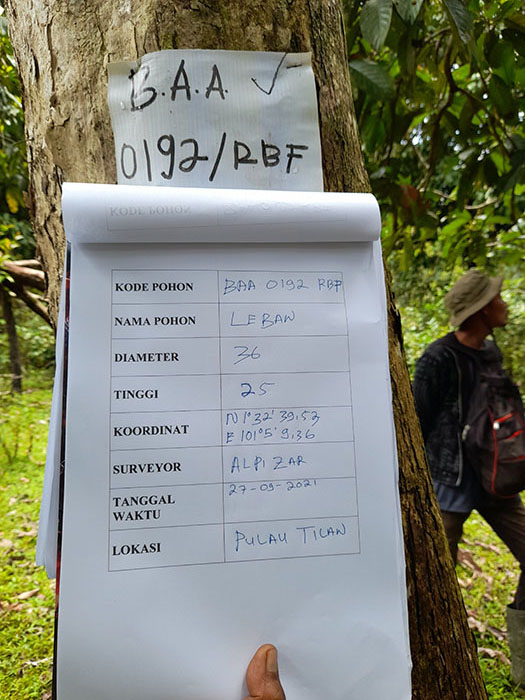 B.A.A. ✓
0192/RBF
KODE POHON
KODE POHON BAA 0192 RBF
NAMA POHON LEBAN
DIAMETER 36
TINGGI 25
KOORDINAT N 1°32' 39,53
E 101°5' 9,36
SURVEYOR ALPIZAR
TANGGAL WAKTU 27-09-2021
LOKASI PULAU TILAN